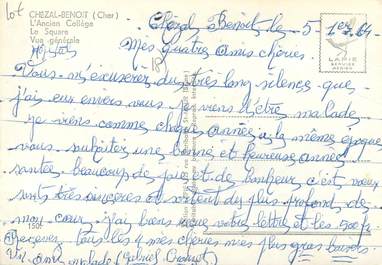 lot
CHEZAL-BENOIT (Cher)
L'Ancien Collège
Le Square
Vue générale
Chézal Benoit le 5 1er 64
Mes quatre amis chéries.
LAPIE
SERVICE
AERIEN
Vous m'excuserez du très long silence que
j'ai eu envers vous je viens d'être malade
je viens comme chaque année à la même époque
vous souhaiter une bonne et heureuse année
santée beaucoup de joie et de bonheur c'est vœux
sont très sincères et sortent du plus profond de
mon cœur. j'ai bien reçue votre lettre et les
recevez tous les 4 mes chéries mes plus gros baisers
Vil ami malade (Gabriel
150